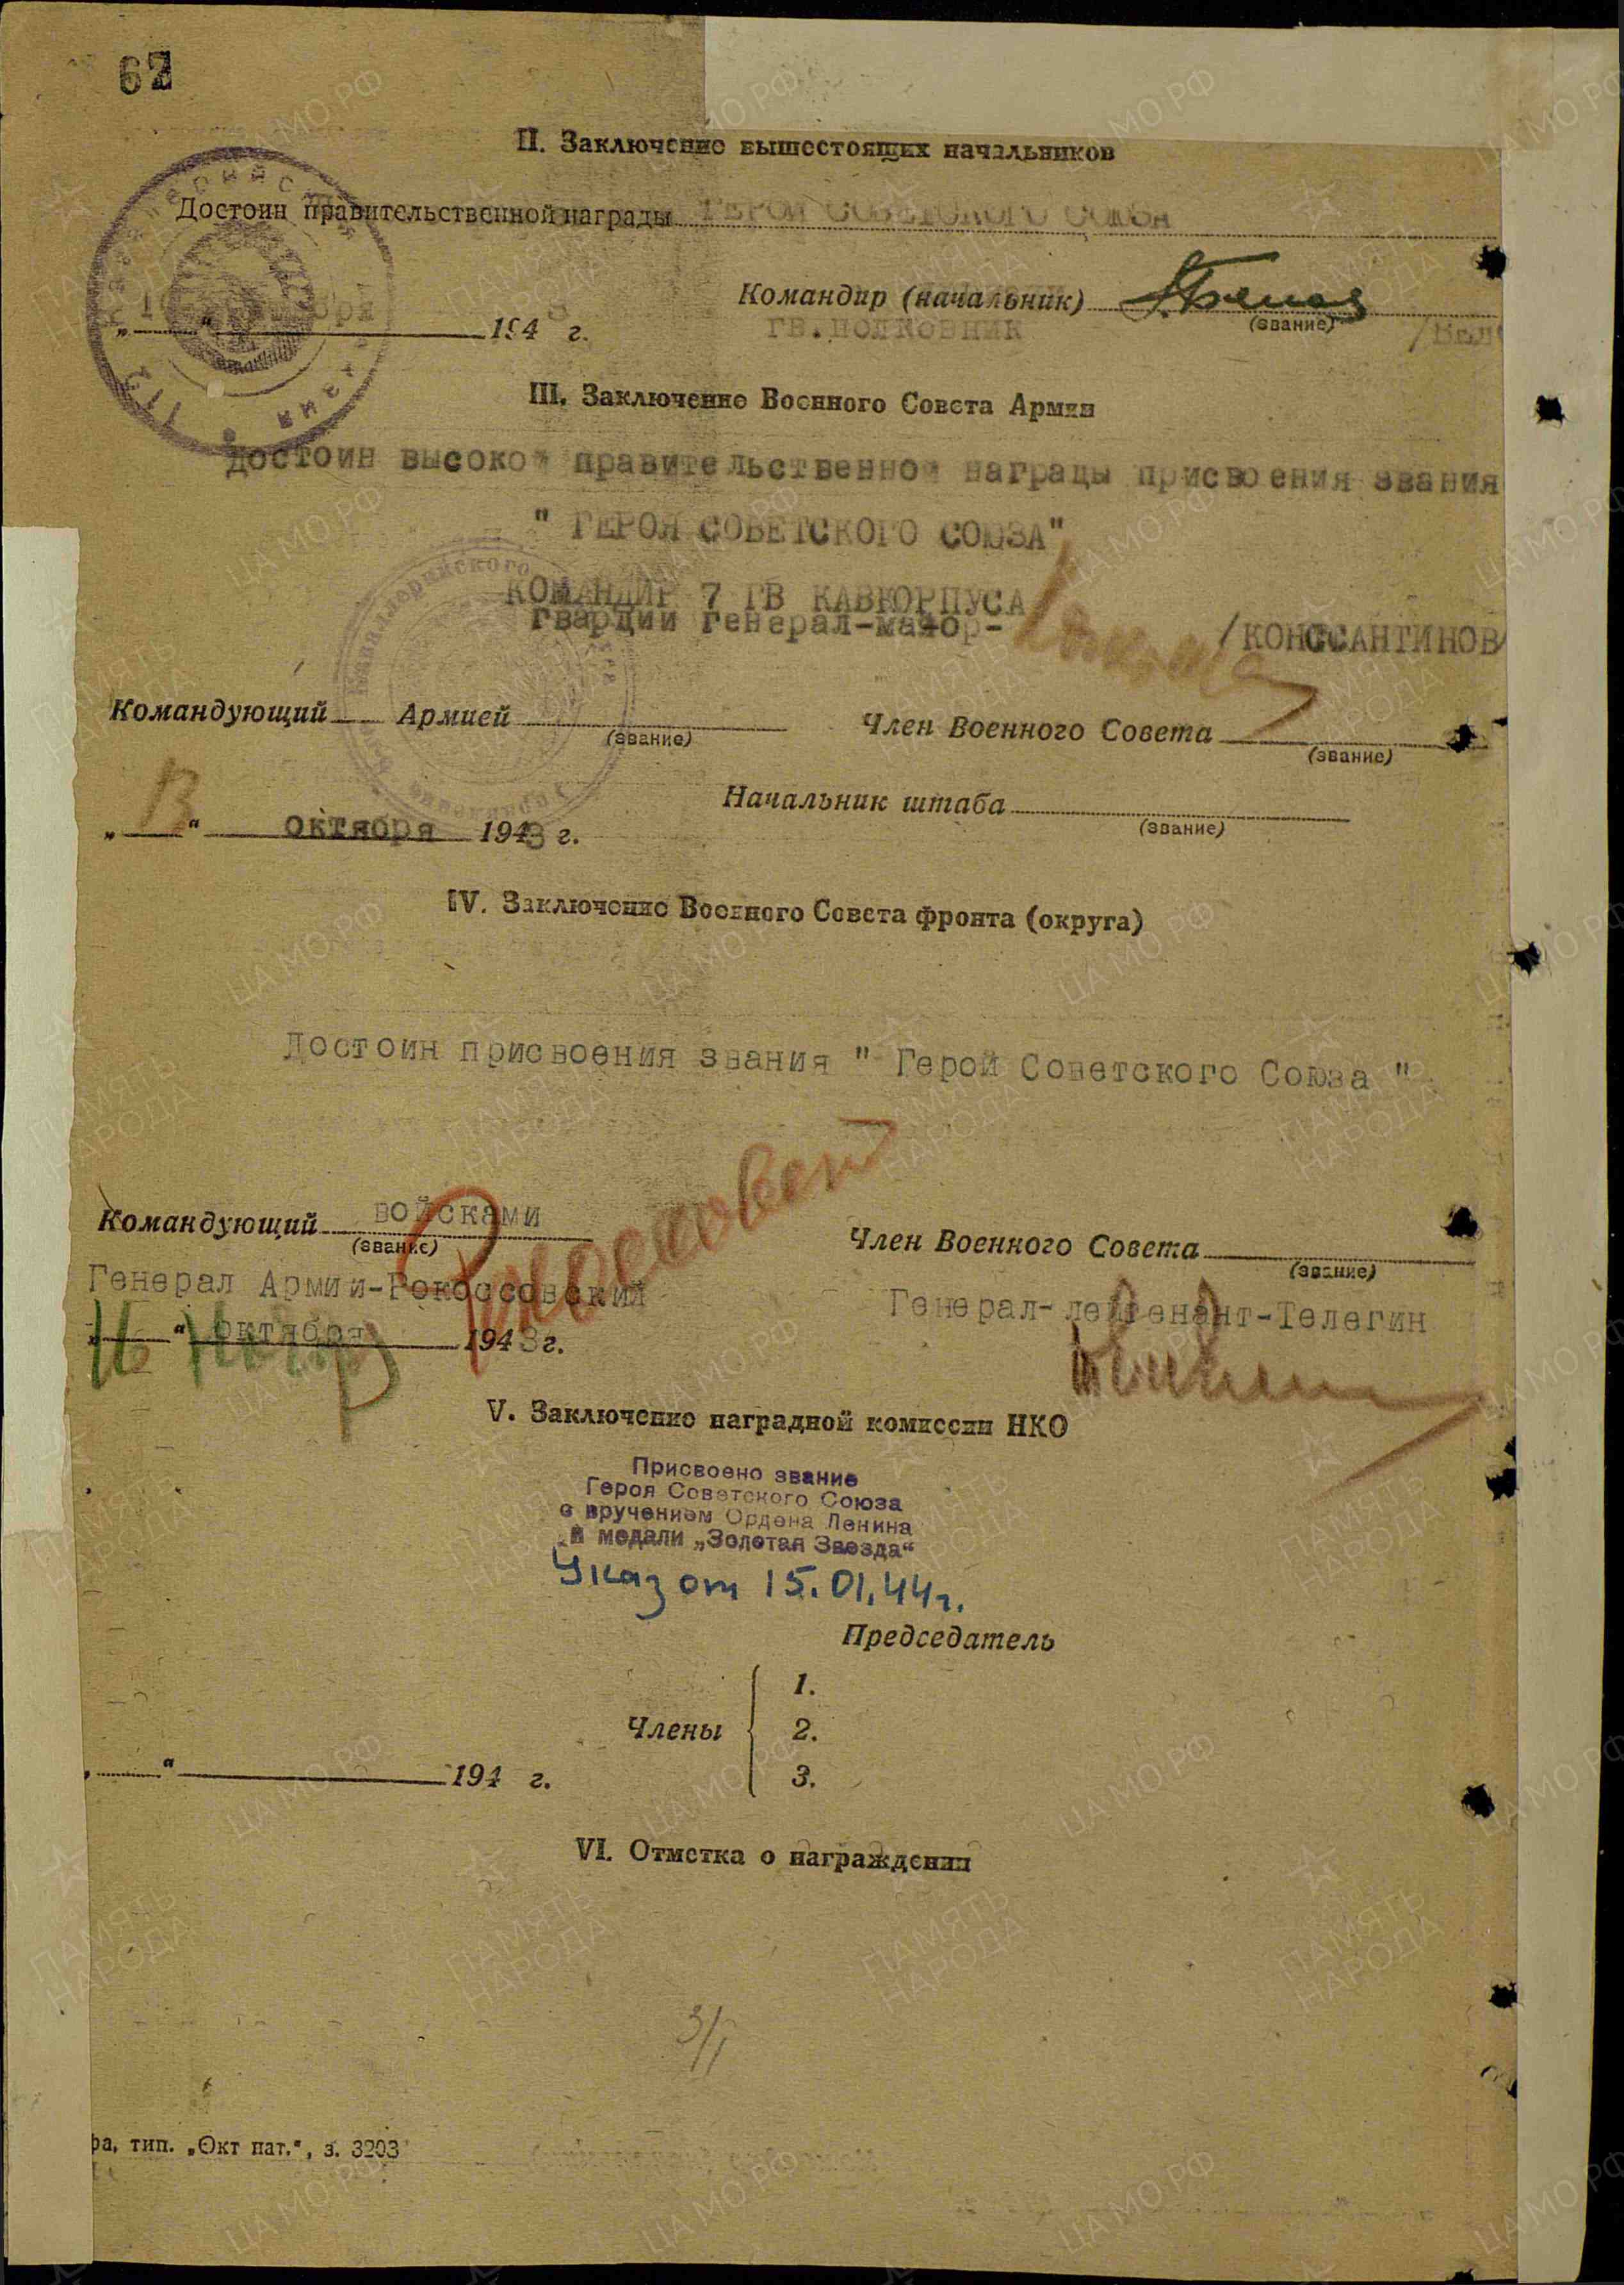 62
II. Заключение вышестоящих начальников
Достоин правительственной награды ГЕРОЯ СОВЕТСКОГО СОЮЗА
Командир (начальник)
(звание)
„ “ 1943 г.
гв.полковник
III. Заключение Военного Совета Армии
достоин высокой правительственной награды присвоения звания
" ГЕРОЯ СОВЕТСКОГО СОЮЗА"
КОМАНДИР 7 ГВ КАВКОРПУСА
гвардии генерал-майор- /КОНССАНТИНОВ/
Командующий Армией
(звание)
Член Военного Совета
(звание)
Начальник штаба
(звание)
„13“ октября 1943 г.
IV. Заключение Военного Совета фронта (округа)
Достоин присвоения звания " Герой Советского Союза "
Командующий войсками
(звание)
Член Военного Совета
(звание)
Генерал Армии-Рокоссовский
Генерал-лейтенант-Телегин
„16“ октября 1943 г.
V. Заключение наградной комиссии НКО
Присвоено звание
Героя Советского Союза
с вручением Ордена Ленина
и медали „Золотая Звезда“
Указ от 15.01.44г.
Председатель
Члены
1.
2.
3.
„ “ 194 г.
VI. Отметка о награждении
3/I
фа, тип. „Окт пат.“, з. 3203
ПАМЯТЬ НАРОДА
ЦА МО РФ